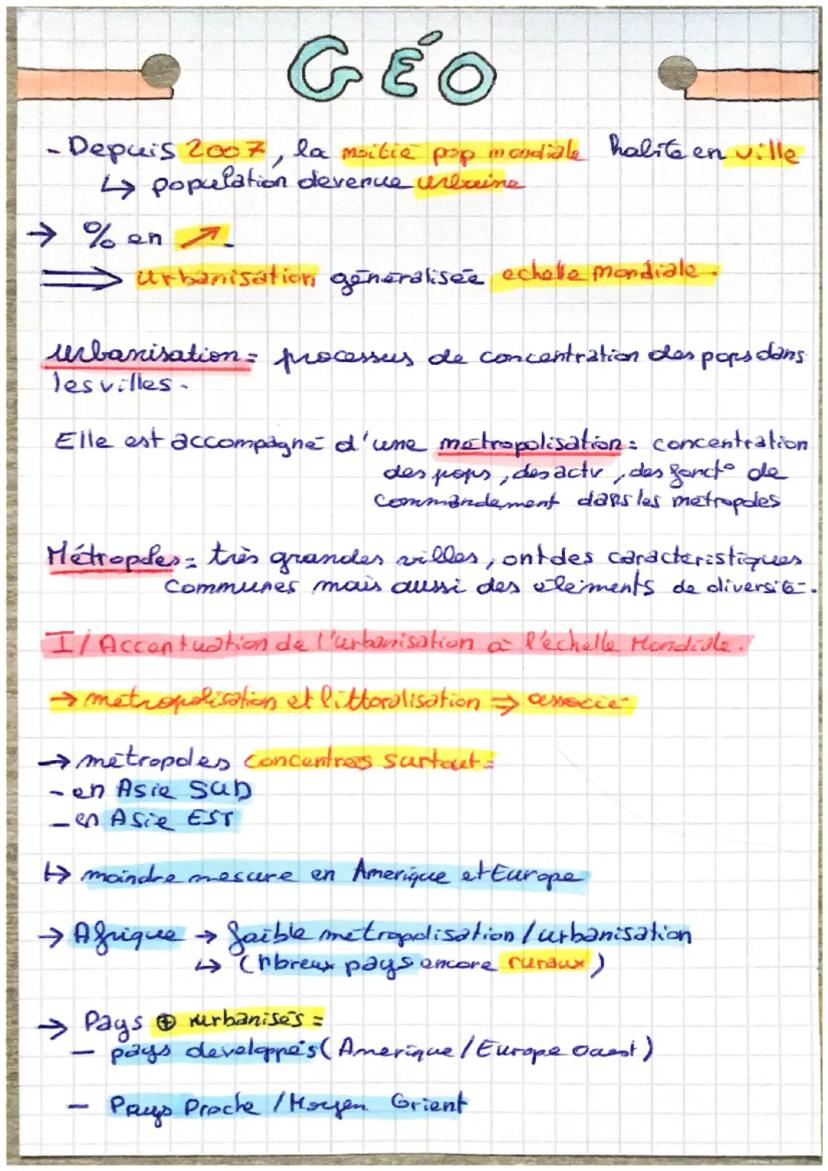 GÉO
- Depuis 2007, la moitié pop mondiale habite en ville
↳ population devenue urbaine
→ % en ↗
⟹ Urbanisation généralisée echelle Mondiale.
Urbanisation = processus de concentration des pops dans
les villes.
Elle est accompagné d'une métropolisation = concentration
des pops, des actv, des fonct° de
commandement dans les métropoles
Métropoles = très grandes villes, ont des caractéristiques
communes mais aussi des éléments de diversité.
I/ Accentuation de l'urbanisation à l'échelle Mondiale.
→ métropolisation et littoralisation ⇒ associé
→ métropoles concentrées surtout =
- en Asie SUD
- en Asie EST
↳ moindre mesure en Amérique et Europe
→ Afrique → faible métropolisation / urbanisation
↳ (nbreux pays encore ruraux)
→ Pays ⊕ urbanisés =
- pays développés (Amérique / Europe Ouest)
- Pays Proche / Moyen Orient